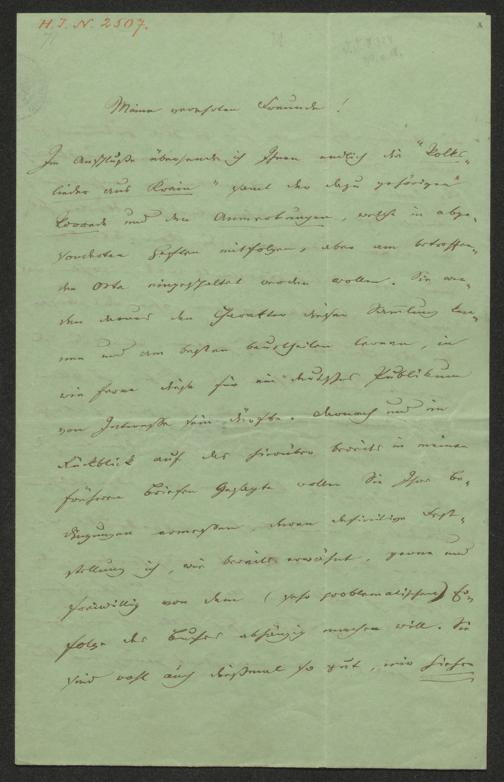 H. I. N. 2507.
Meine verehrten Freunde!
Im Anschluße übersende ich Ihnen endlich die "Volks-
lieder aus Krain" sammt der dazu gehörigen
Vorrede und den Anmerkungen, welche in abge-
sonderten Heften mitfolgen, aber am betreffen-
den Orte eingeschaltet werden wollen. Sie wer-
den daraus den Charakter dieser Sammlung ken-
nen und am besten beurtheilen lernen, in
wie ferne diese für ein deutsches Publikum
von Interesse sein dürfte. Darnach und im
Rückblick auf das hierüber bereits in meinen
früheren Briefen Gesagte wollen Sie Ihre Be-
dingungen ermessen, deren definitive Fest-
stellung ich, wie bereits erwähnt, gerne und
freiwillig von dem (sehr problematischen) Er-
folge des Buches abhängig machen will. Sie
sind wohl auch dießmal so gut, mir hierher